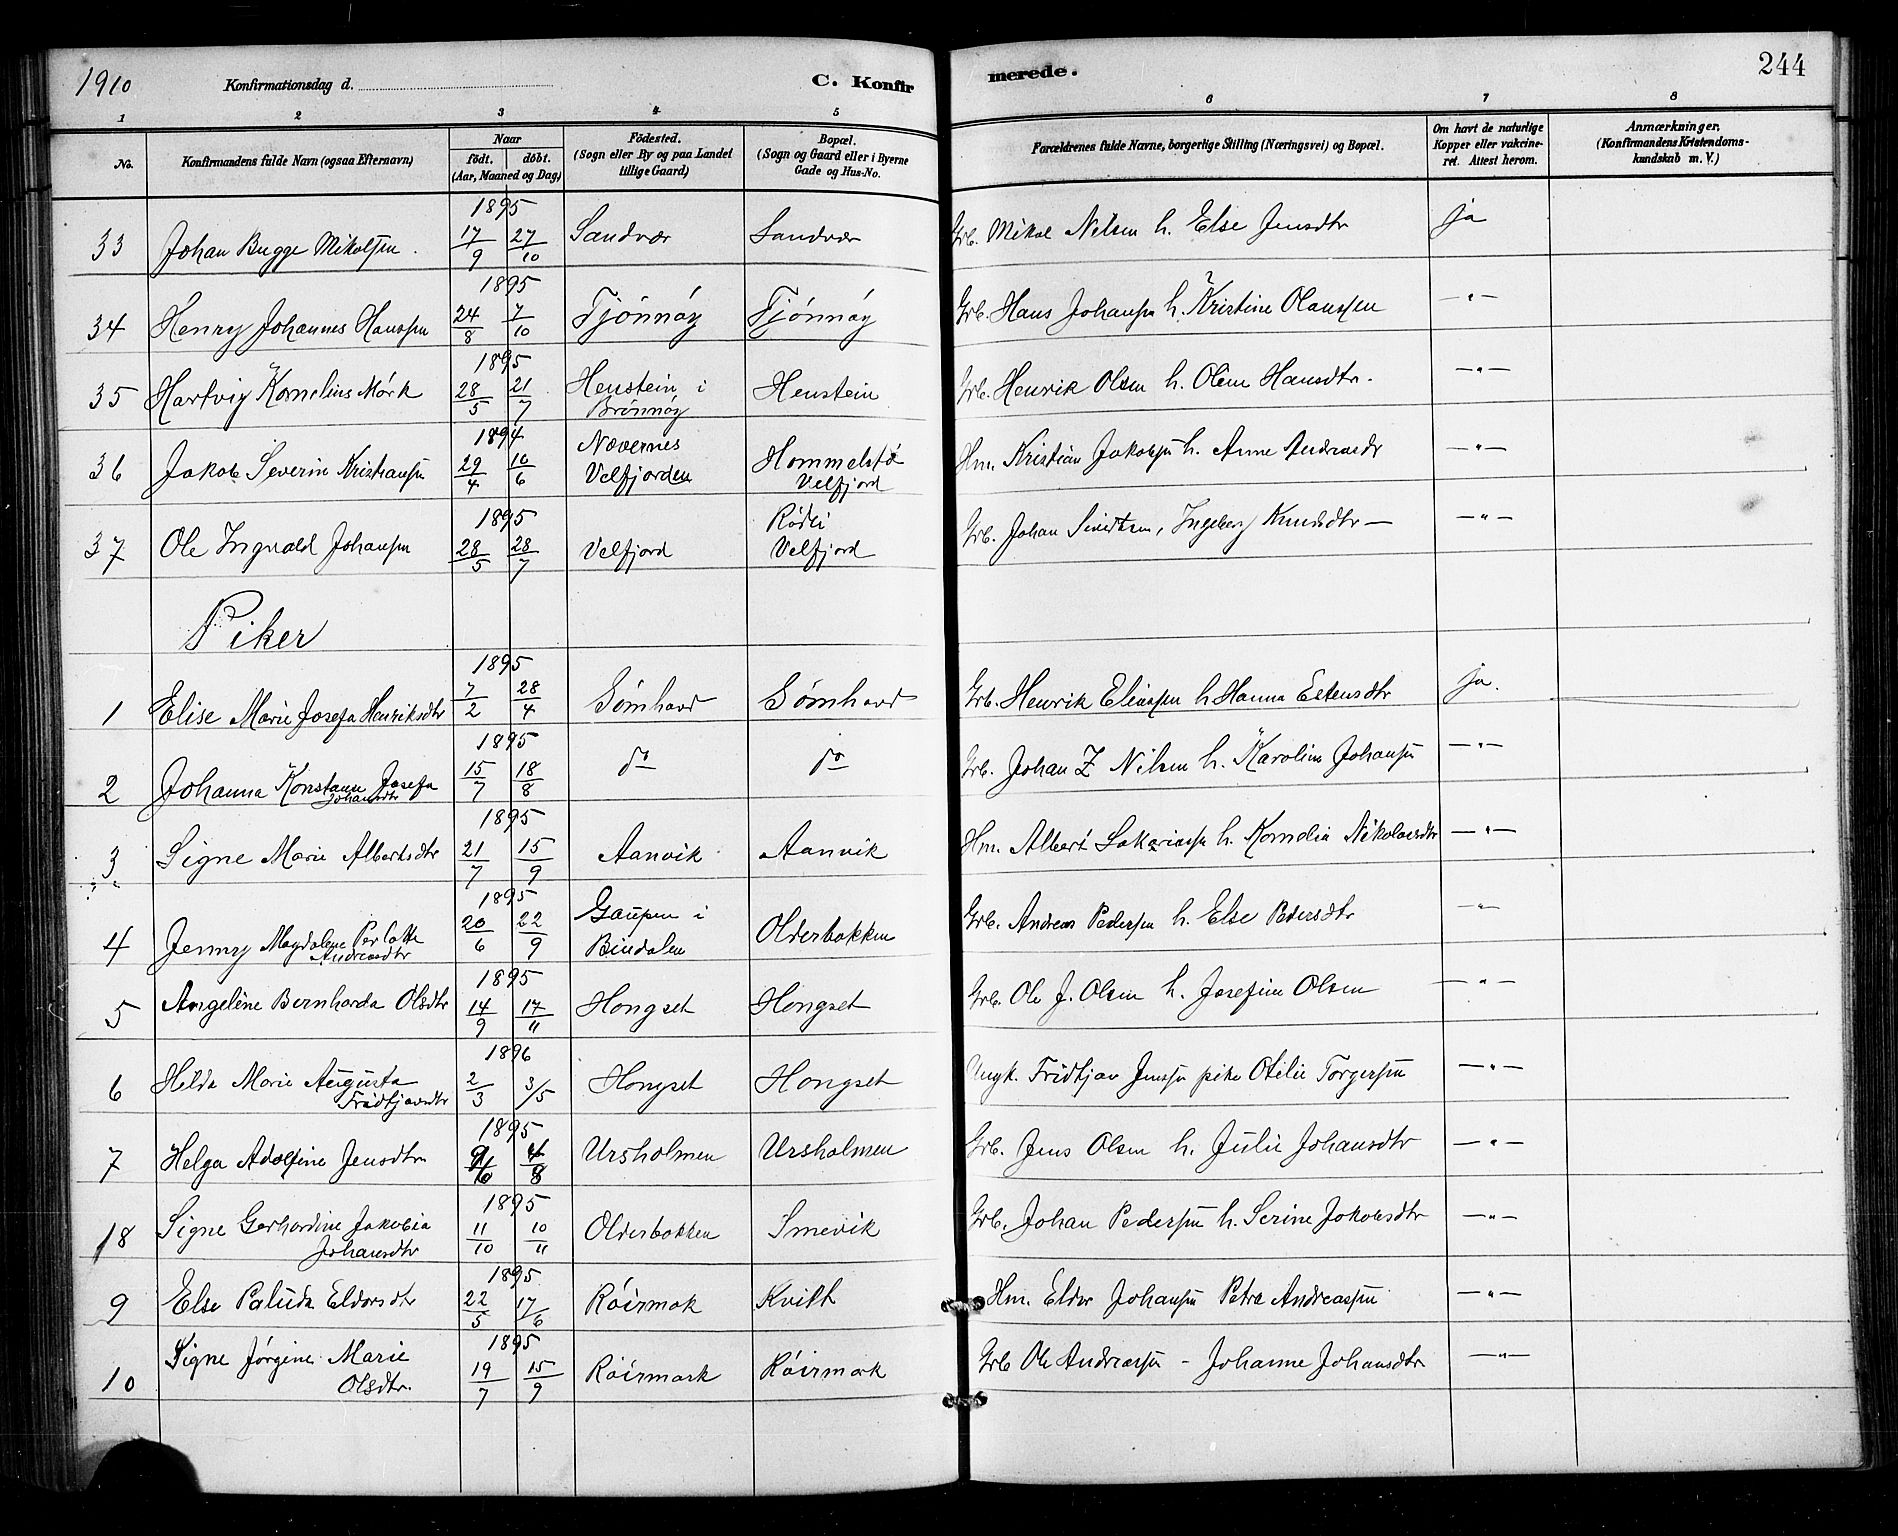 1910 Konfirmationsdag d. C. Konfirmerede. 244
1 2 3 4 5 6 7 8
No. Konfirmandens fulde Navn (ogsaa Efternavn) Naar født. døbt. (Aar, Maaned og Dag) Fødested. (Sogn eller By og paa Landet tillige Gaard) Bopæl. (Sogn og Gaard eller i Byerne Gade og Hus-No. Forældrenes fulde Navne, borgerlige Stilling (Næringsvei) og Bopæl. Om havt de naturlige Kopper eller vakcineret. Attest herom. Anmærkninger. (Konfirmandens Kristendomskundskab m. V.)
33 Johan Bugge Mikalsen. 1895 17/9 27/10 Sandvær Sandvær Grb. Mikal Nilsen h. Else Jensdtr ja
34 Henry Johannes Hanssen 1895 24/8 7/10 Tjønnøy Tjønnøy Grb. Hans Johansen h. Kristine Olaussen —"—
35 Hartvig Kornelius Mørk 1895 28/5 21/7 Henstein i Brønnøy Henstein Grb. Henrik Olsen h. Oline Hansdtr. —"—
36 Jakob Severin Kristiansen 1894 29/4 10/6 Nævernes Velfjorden Hommelstø Velfjord Hm. Kristian Jakobsen h. Anne Andreasdr —"—
37 Ole Ingvald Johansen 1895 28/5 28/7 Velfjord Rødli Velfjord Grb. Johan Sivertsen, Ingeborg Knudsdtr — —"—
Piker
1 Elise Marie Josefa Henriksdtr 1895 7/2 28/4 Sømhavd Sømhavd Grb. Henrik Eliassen h Hanna Estensdtr ja.
2 Johanna Konstanse Josefa Johansdtr 1895 15/7 18/8 do do Grb. Johan Z Nilsen h. Karoline Johansen —"—
3 Signe Marie Albertsdtr 1895 21/7 15/9 Aanvik Aanvik Hm. Albert Sakariassen h. Kornelia Nikolaisdtr —"—
4 Jenny Magdalene Perlotte Andreasdtr 1895 20/6 22/9 Gaupen i Bindalen Olderbakken Grb. Andreas Pedersen h. Else Pedersdtr —"—
5 Angeline Bernharda Olsdtr 1895 14/9 17/11 Hongset Hongset Grb. Ole J. Olsen h. Josefine Olsen —"—
6 Helda Marie Augusta Fridtjovsdtr 1896 2/3 3/5 Hongset Hongset Ungk. Fridtjov Jenssen pike Otilie Torgersen —"—
7 Helga Adolfine Jensdtr 1895 9/6 4/8 Ursholmen Ursholmen Grb. Jens Olsen h. Julie Johansdtr —"—
18 Signe Gerhardine Jakobia Johansdtr 1895 11/10 10/11 Olderbakken Smevik Grb. Johan Pedersen h. Serine Jakobsdtr —"—
9 Else Paluda Eldorsdtr 1895 22/5 17/6 Røirmark Kvilt Hm. Eldor Johansen Petra Andreassen —"—
10 Signe Jørgine Marie Olsdtr. 1895 19/7 15/9 Røirmark Røirmark Grb Ole Andreassen - Johanne Johansdtr —"—